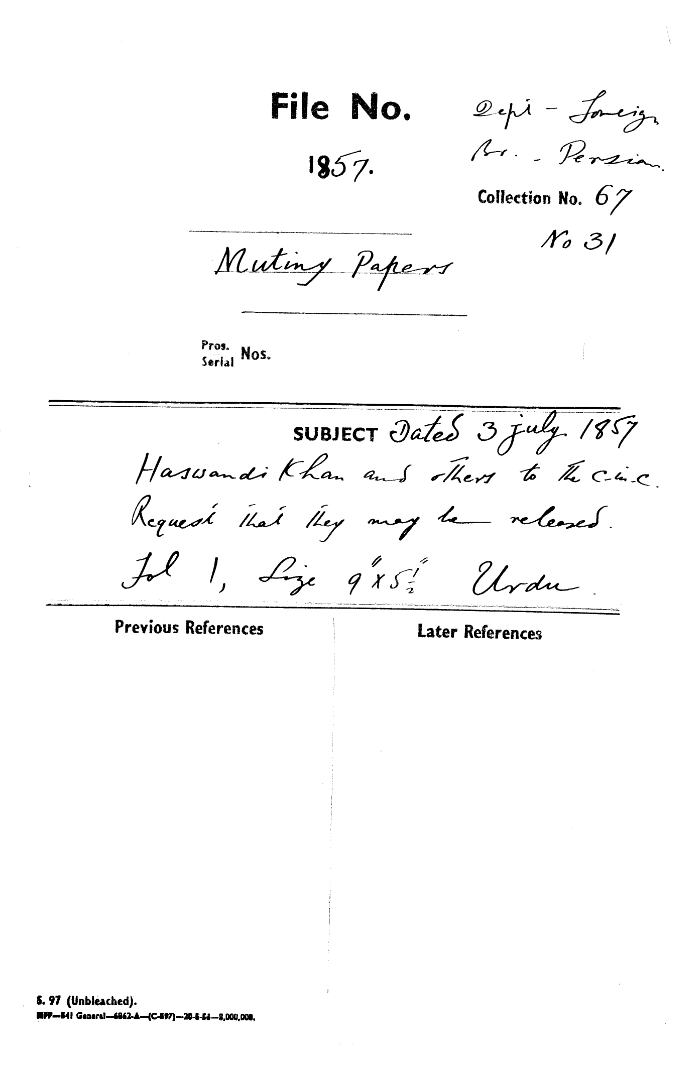 File No.
1857.
Dept - Foreign
Br. - Persian.
Collection No. 67
No 31
Mutiny Papers
Pros.
Serial Nos.
SUBJECT Dated 3 july 1857
Haswandi Khan and others to the C-in-C.
Request that they may be released.
Fol 1, Size 9" x 5½" Urdu.
Previous References
Later References
S. 97 (Unbleached).
MFP—541 General—6862-A—(C-597)—20-5-54—2,000,000.